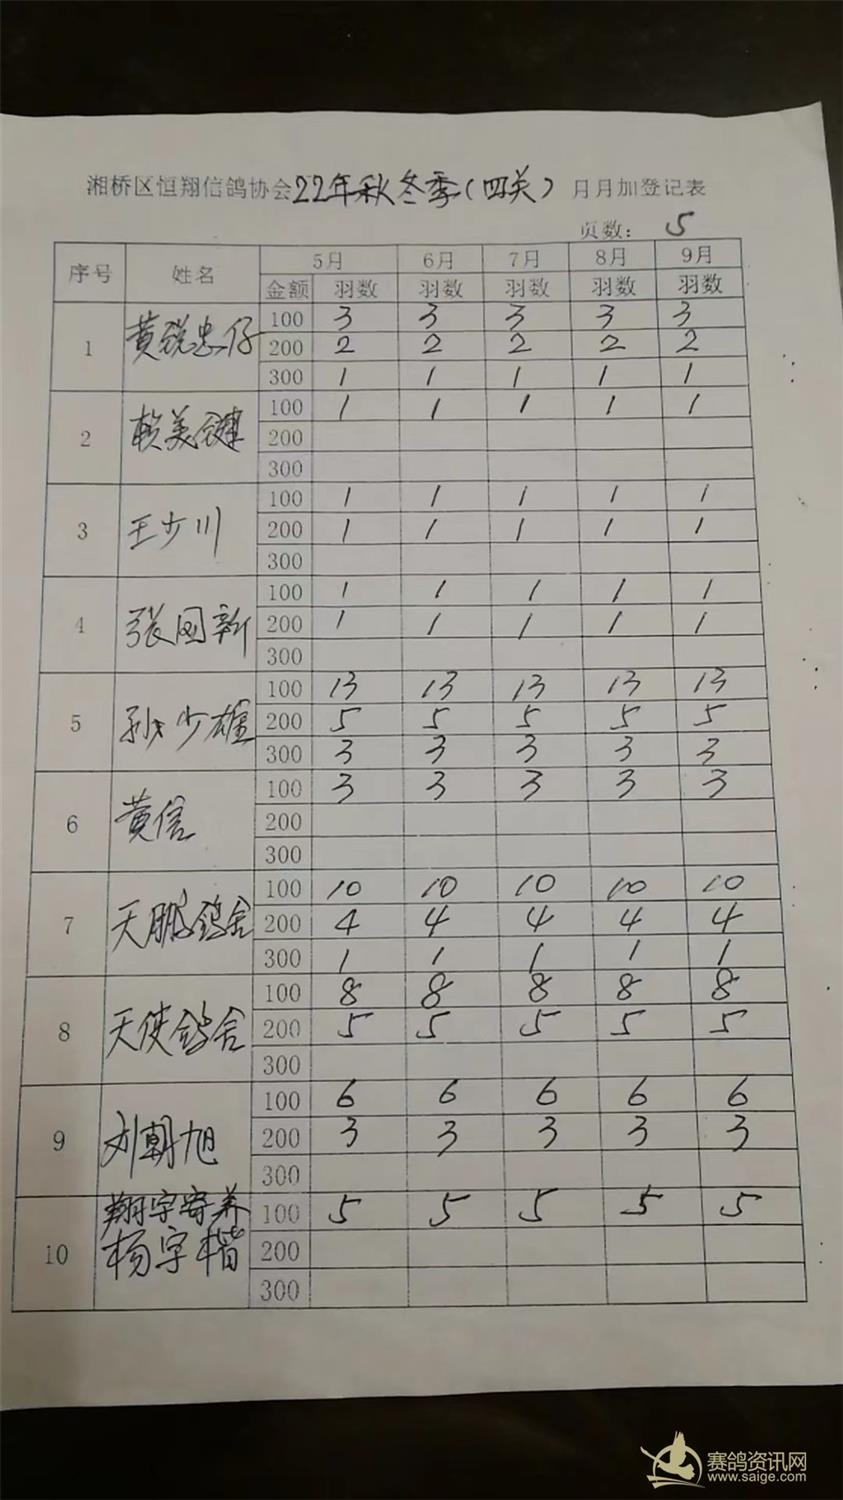 湘桥区恒翔信鸽协会22年秋冬季(四关) 月月加登记表
页数: 5
序号 姓名 5月 6月 7月 8月 9月
金额 羽数 羽数 羽数 羽数 羽数
1 黄锐忠仔 100 3 3 3 3 3
200 2 2 2 2 2
300 1 1 1 1 1
2 赖美键 100 1 1 1 1 1
200
300
3 王少川 100 1 1 1 1 1
200 1 1 1 1 1
300
4 张国新 100 1 1 1 1 1
200 1 1 1 1 1
300
5 孙少雄 100 13 13 13 13 13
200 5 5 5 5 5
300 3 3 3 3 3
6 黄信 100 3 3 3 3 3
200
300
7 天鹏鸽舍 100 10 10 10 10 10
200 4 4 4 4 4
300 1 1 1 1 1
8 天使鸽舍 100 8 8 8 8 8
200 5 5 5 5 5
300
9 刘朝旭 100 6 6 6 6 6
200 3 3 3 3 3
300
10 翔宇寄养 100 5 5 5 5 5
杨宇楷 200
300
赛鸽资讯网
www.saige.com